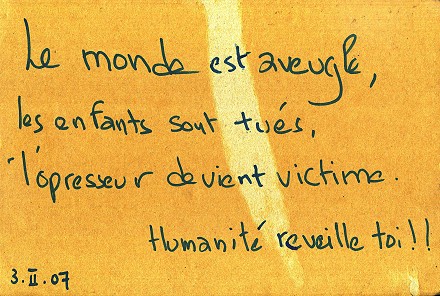 Le monde est aveugle,
les enfants sont tués,
l'opresseur devient victime.
Humanité reveille toi!!
3.II.07